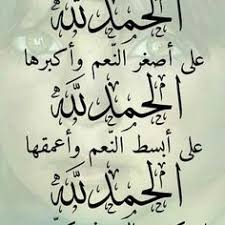 الحمد لله
على أصغر النّعم وأكبرها
الحمد لله
على أبسط النّعم وأعمقها
الحمد لله